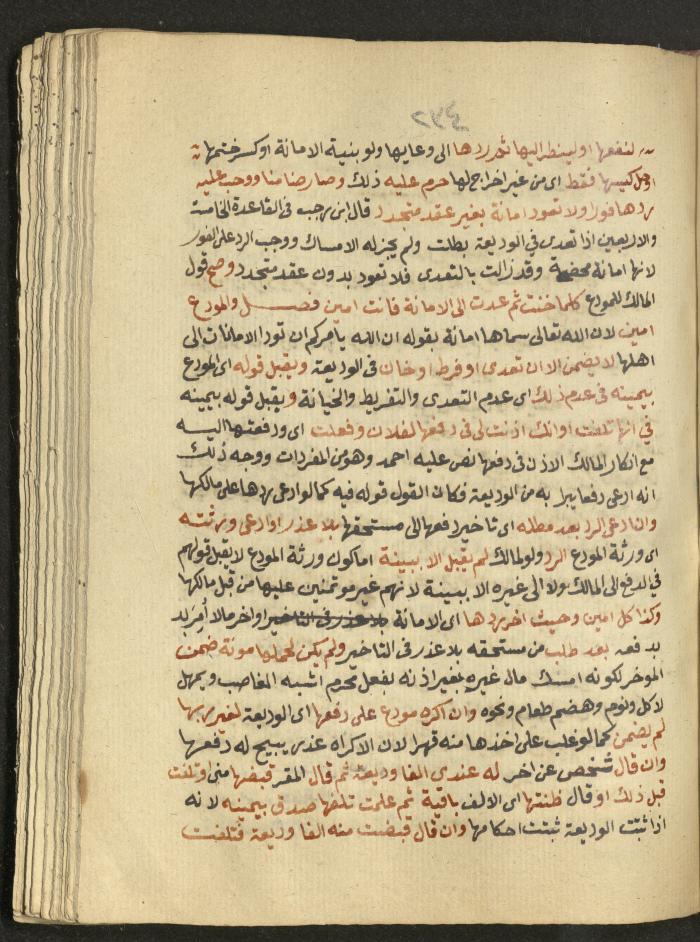 ٤٧٢
لنفعها او لينظر اليها ثم ردها الى وعايها ولو بنية الامانة او كسر ختمها
او حل كيسها فقط اى من غير اخراج لها حرم عليه ذلك وصار ضامنا ووجب عليه
ردها فورا ولا تعود امانة بغير عقد متجدد قال ابن رجب فى القاعدة الخامسة
والاربعين اذا تعدى فى الوديعة بطلت ولم يجز له الامساك ووجب الرد على الفور
لانها امانة محضة وقد زالت بالتعدى فلا تعود بدون عقد متجدد وصح قول
المالك للمودع كلما خنت ثم عدت الى الامانة فانت امين فصل والمودع
امين لان الله تعالى سماها امانة بقوله ان الله يامركم ان تودا الامانات الى
اهلها لا يضمن الا ان تعدى او فرط او خان فى الوديعة ويقبل قوله اى المودع
بيمينه فى عدم ذلك اى عدم التعدى والتفريط والخيانة ويقبل قوله بيمينه
فى انها تلفت او انك اذنت لى فى دفعها لفلان وفعلت اى ودفعتها اليه
مع انكار المالك الاذن فى دفعها نص عليه احمد وهو من المفردات ووجه ذلك
انه ادعى دفعا يبرا به من الوديعة فكان القول قوله فيه كما لو ادعى ردها على مالكها
وان ادعى الرد بعد مطله اى تاخير دفعها الى مستحقها بلا عذر او ادعى ورثته
اى ورثة المودع الرد ولو لمالك لم يقبل الا ببينة اما كون ورثة المودع لا يقبل قولهم
فى الدفع الى المالك ولا الى غيره الا ببينة لانهم غير موتمنين عليها من قبل مالكها
وكذا كل امين وحيث اخر ردها اى الامانة بلا عذر فى التاخير او اخر مالا أُمِرَ بد
بدفعه بعد طلب من مستحقه بلا عذر فى التاخير ولم يكن لحملها مونة ضمن
الموخر لكونه امسك مال غيره بغير اذنه بفعل محرم اشبه الغاصب ويمهل
لاكل ونوم وهضم طعام ونحوه وان اكره مودع على دفعها اى الوديعة لغير ربها
لم يضمن كما لو غلب على اخذها منه قهرا لان الاكراه عذر يبيح له دفعها
وان قال شخص عن اخر له عندى الفا وديعة ثم قال المقر قبضها منى او تلفت
قبل ذلك او قال ظنتها اى الالف باقية ثم علمت تلفها صدق بيمينه لانه
اذا ثبتت الوديعة ثبتت احكامها وان قال قبضت منه الفا وديعة فتلفت